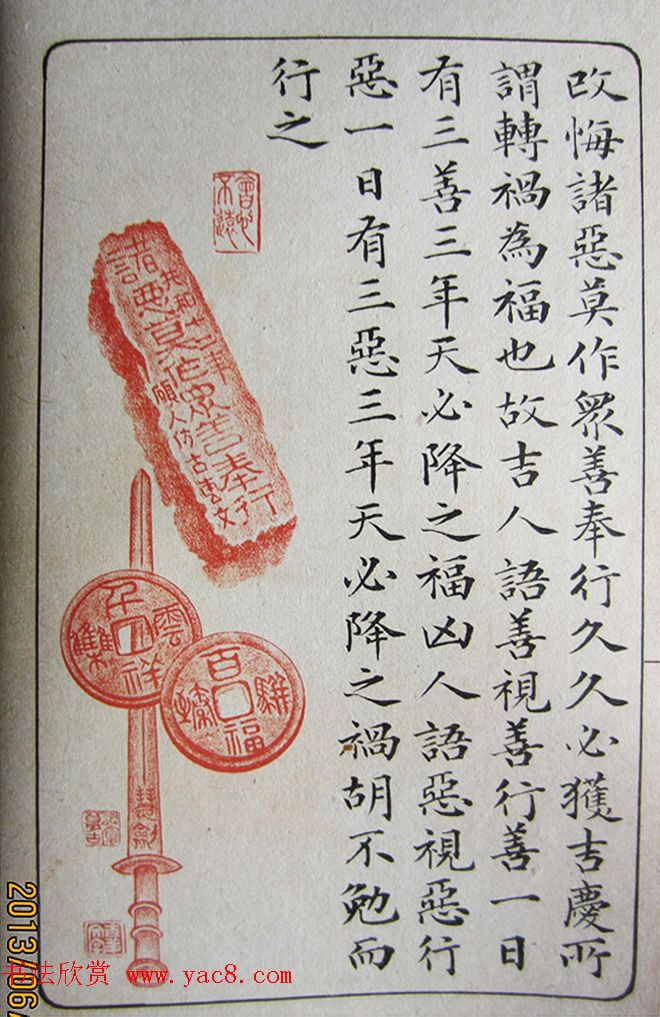 改悔諸惡莫作眾善奉行久久必獲吉慶所
謂轉禍為福也故吉人語善視善行善一日
有三善三年天必降之福凶人語惡視惡行
惡一日有三惡三年天必降之禍胡不勉而
行之
諸惡莫作眾善奉行
雲集
祥
百福
駢臻
慧劍
2013/06/
书法欣赏 www.yac8.com